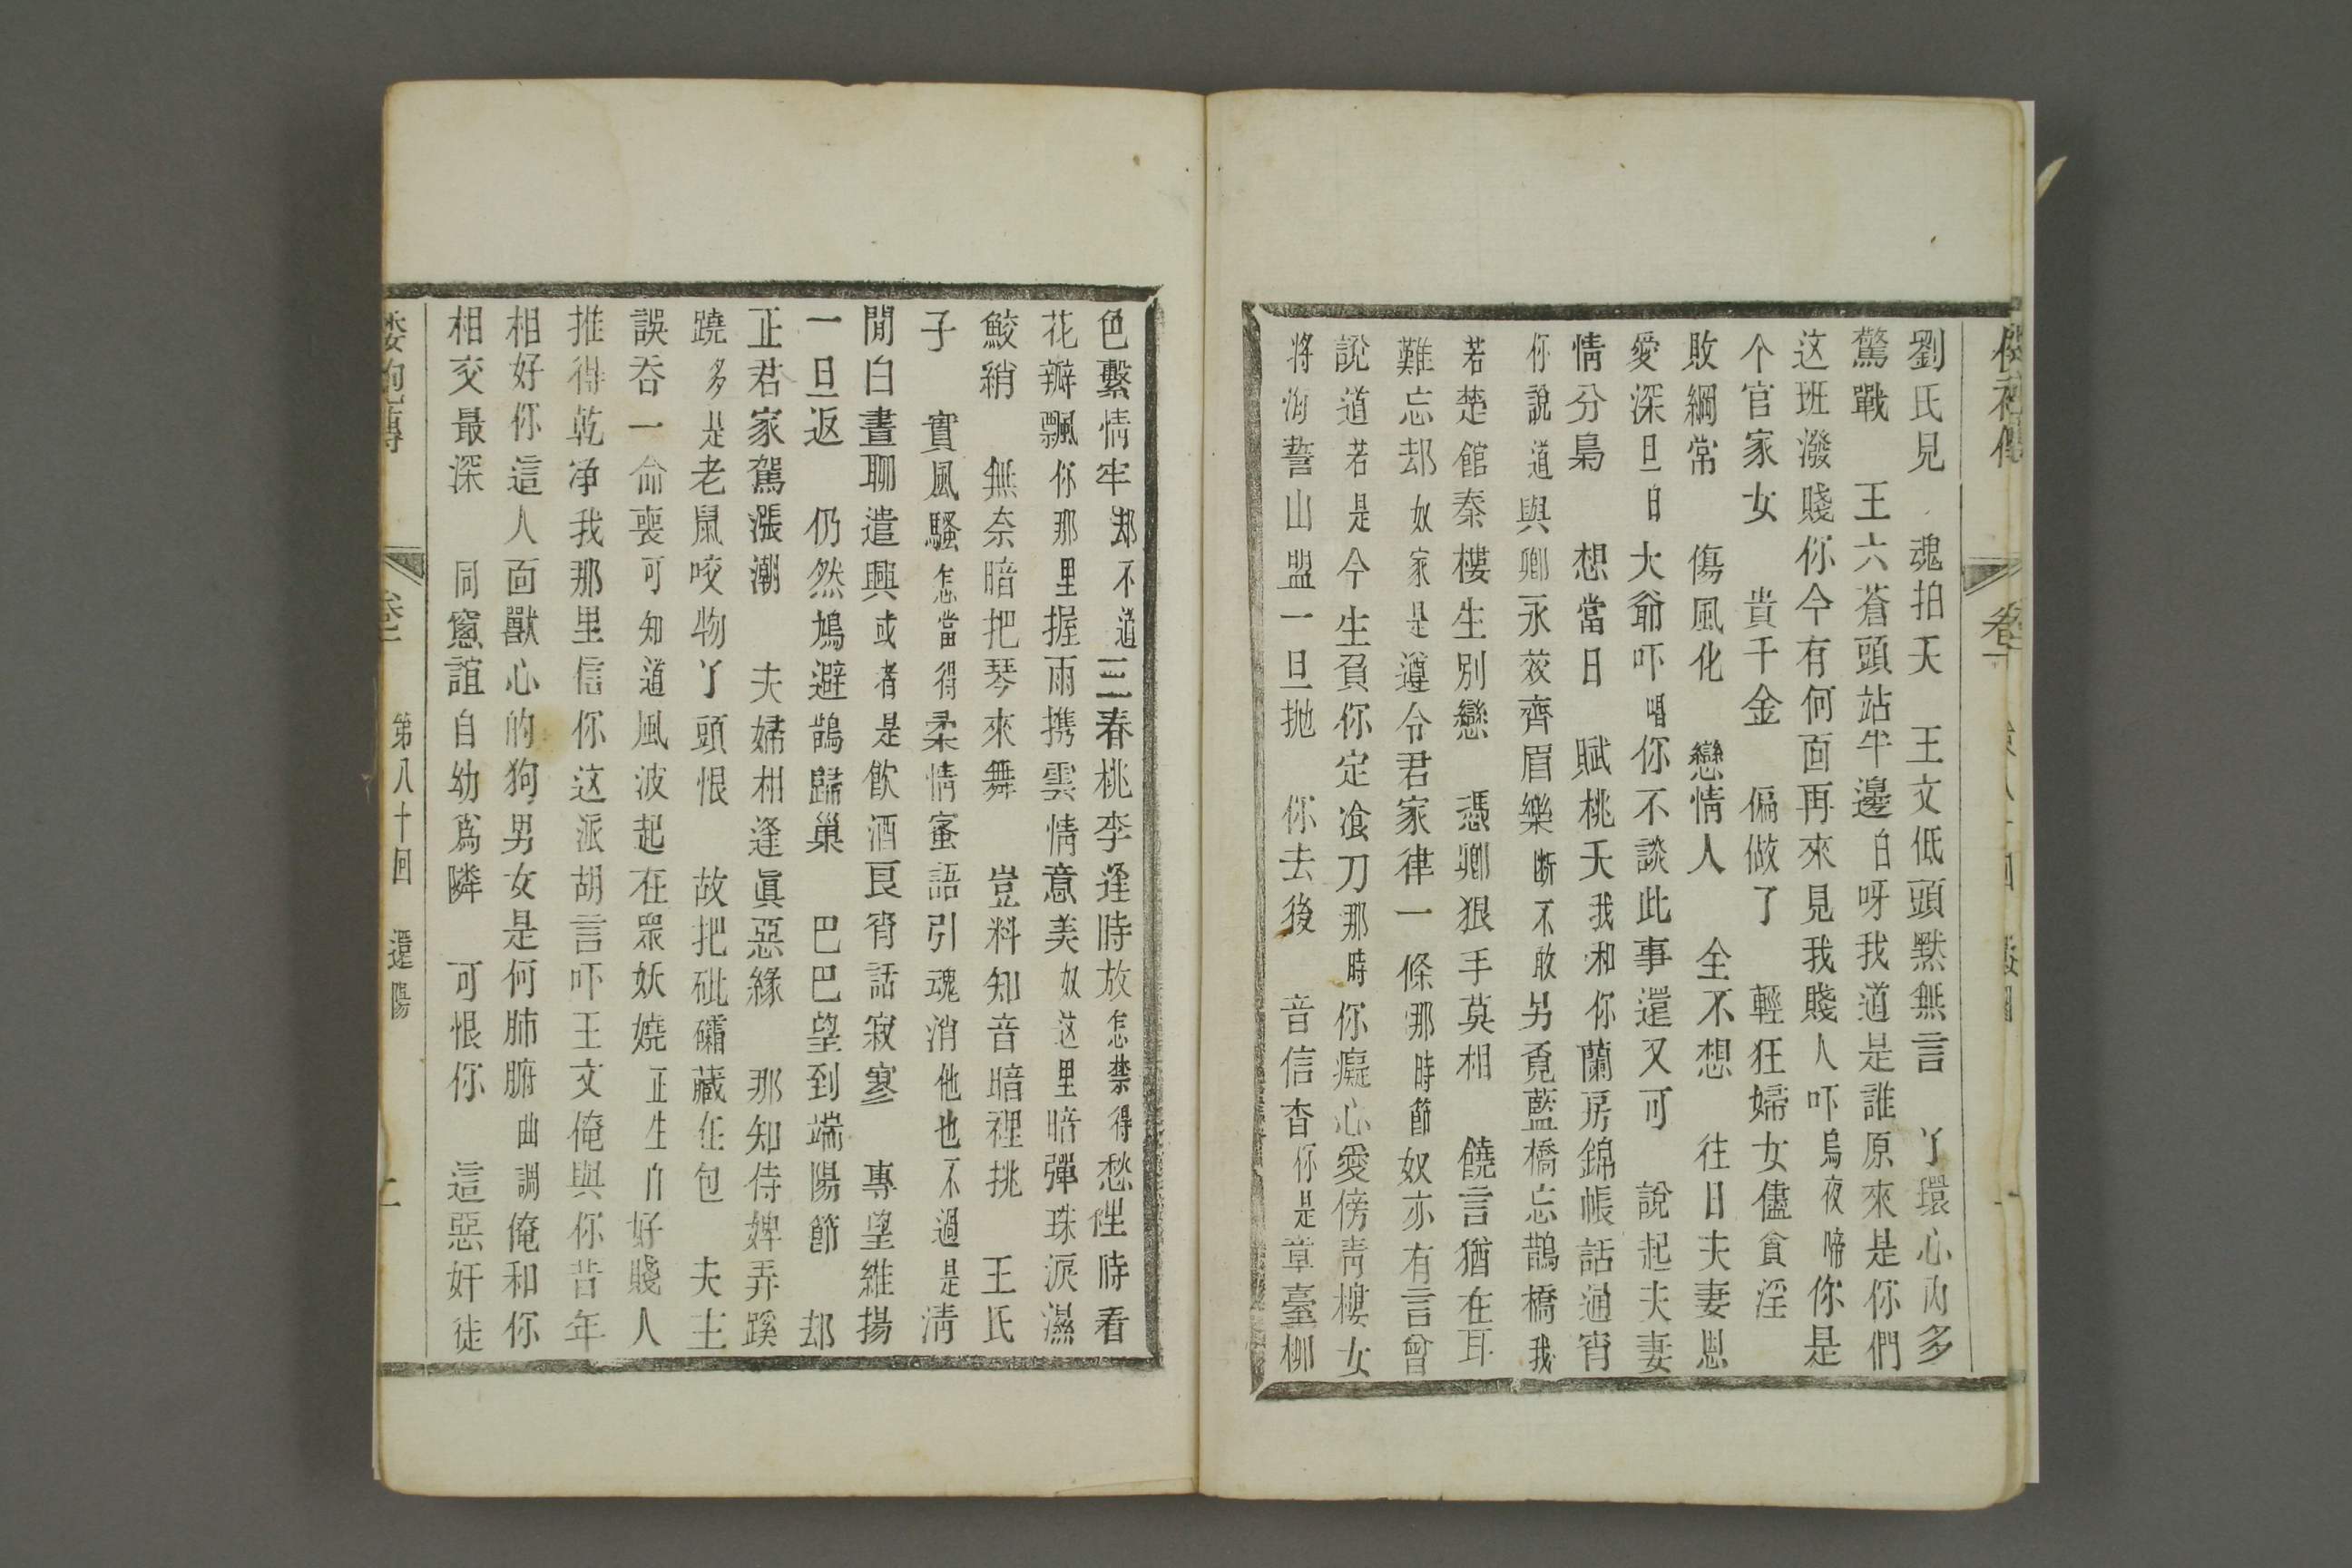 劉氏見 魂拍天 王文低頭默無言 丫環心內多
驚戰 王六蒼頭站半邊白呀我道是誰原來是你們
这班潑賤你今有何面再來見我賤人吓烏夜啼你是
个官家女 貴千金 偏做了 輕狂婦女儘貪淫
敗綱常 傷風化 戀情人 全不想 往日夫妻恩
愛深旦白大爺吓唱你不談此事還又可 說起夫妻
情分梟 想當日 賦桃夭我和你蘭房錦帳話通宵
你說道與卿永效齊眉樂断不敢另覓藍橋忘鵲橋我
若楚館秦樓生別戀 憑卿狠手莫相 饒言猶在耳
難忘却奴家是遵令君家律一條那時節奴亦有言曾
說道若是今生負你定飡刀那時你癡心愛傍靑樓女
将海誓山盟一旦抛 你去後 音信杳你是章臺柳
色繫情牢却不道三春桃李逢時放怎禁得愁悝時看
花瓣飄你那里握雨携雲情意美奴这里暗彈珠淚濕
鮫綃 無奈暗把琴來舞 豈料知音暗裡挑 王氏
子 實風騷怎當得柔情蜜語引魂消他也不過是淸
閒白晝聊遣興或者是飲酒良宵話寂寥 專望維揚
一旦返 仍然鳩避鵲歸巢 巴巴望到端陽節 却
正君家駕漲潮 夫婦相逢眞惡緣 那知侍婢弄蹊
蹺多是老鼠咬物丫頭恨 故把砒礵藏在包 夫主
誤吞一命喪可知道風波起在眾妖嬈正生白好賤人
推得乾净我那里信你这派胡言吓王文俺與你昔年
相好你這人面獸心的狗男女是何肺腑曲調俺和你
相交最深 同窻誼自幼爲隣 可恨你 這惡奸徒
第八十回 還陽 二